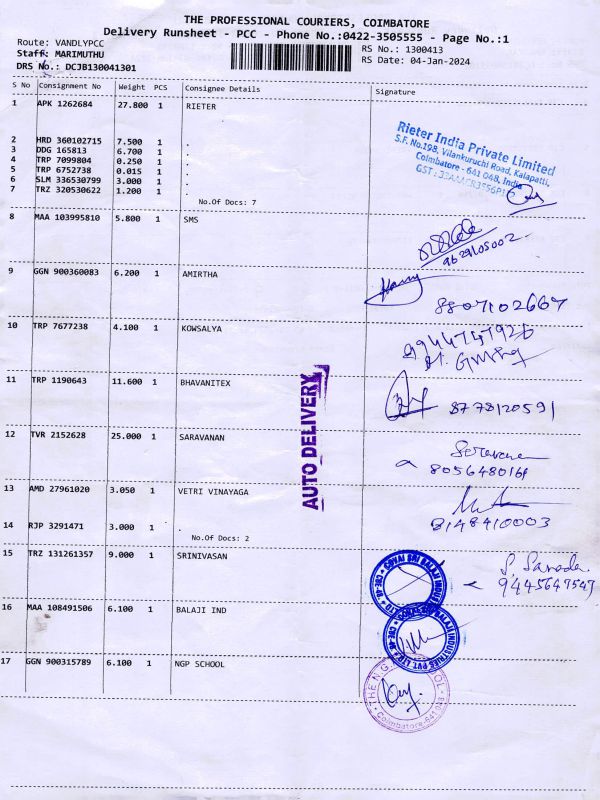 THE PROFESSIONAL COURIERS, COIMBATORE
Delivery Runsheet - PCC - Phone No.:0422-3505555 - Page No.:1
Route: VANDLYPCC
Staff: MARIMUTHU
DRS No.: DCJB130041301
RS No.: 1300413
RS Date: 04-Jan-2024
S No Consignment No Weight PCS Consignee Details Signature
1 APK 1262684 27.800 1 RIETER
2 HRD 360102715 7.500 1 .
3 DDG 165813 6.700 1 .
4 TRP 7099804 0.250 1 .
5 TRP 6752738 0.015 1 .
6 SLM 336530799 3.000 1 .
7 TRZ 320530622 1.200 1 .
No.Of Docs: 7
Rieter India Private Limited
S.F. No.198, Vilankuruchi Road, Kalapatti,
Coimbatore - 641 048, India
8 MAA 103995810 5.800 1 SMS
9629105002
9 GGN 900360083 6.200 1 AMIRTHA
8807102667
10 TRP 7677238 4.100 1 KOWSALYA
9944747926
11 TRP 1190643 11.600 1 BHAVANITEX
8778120591
AUTO DELIVERY
12 TVR 2152628 25.000 1 SARAVANAN
13 AMD 27961020 3.050 1 VETRI VINAYAGA
8148410003
14 RJP 3291471 3.000 1 .
No.Of Docs: 2
15 TRZ 131261357 9.000 1 SRINIVASAN
9445647547
16 MAA 108491506 6.100 1 BALAJI IND
BALAJI INDUSTRIES PVT. LTD
17 GGN 900315789 6.100 1 NGP SCHOOL